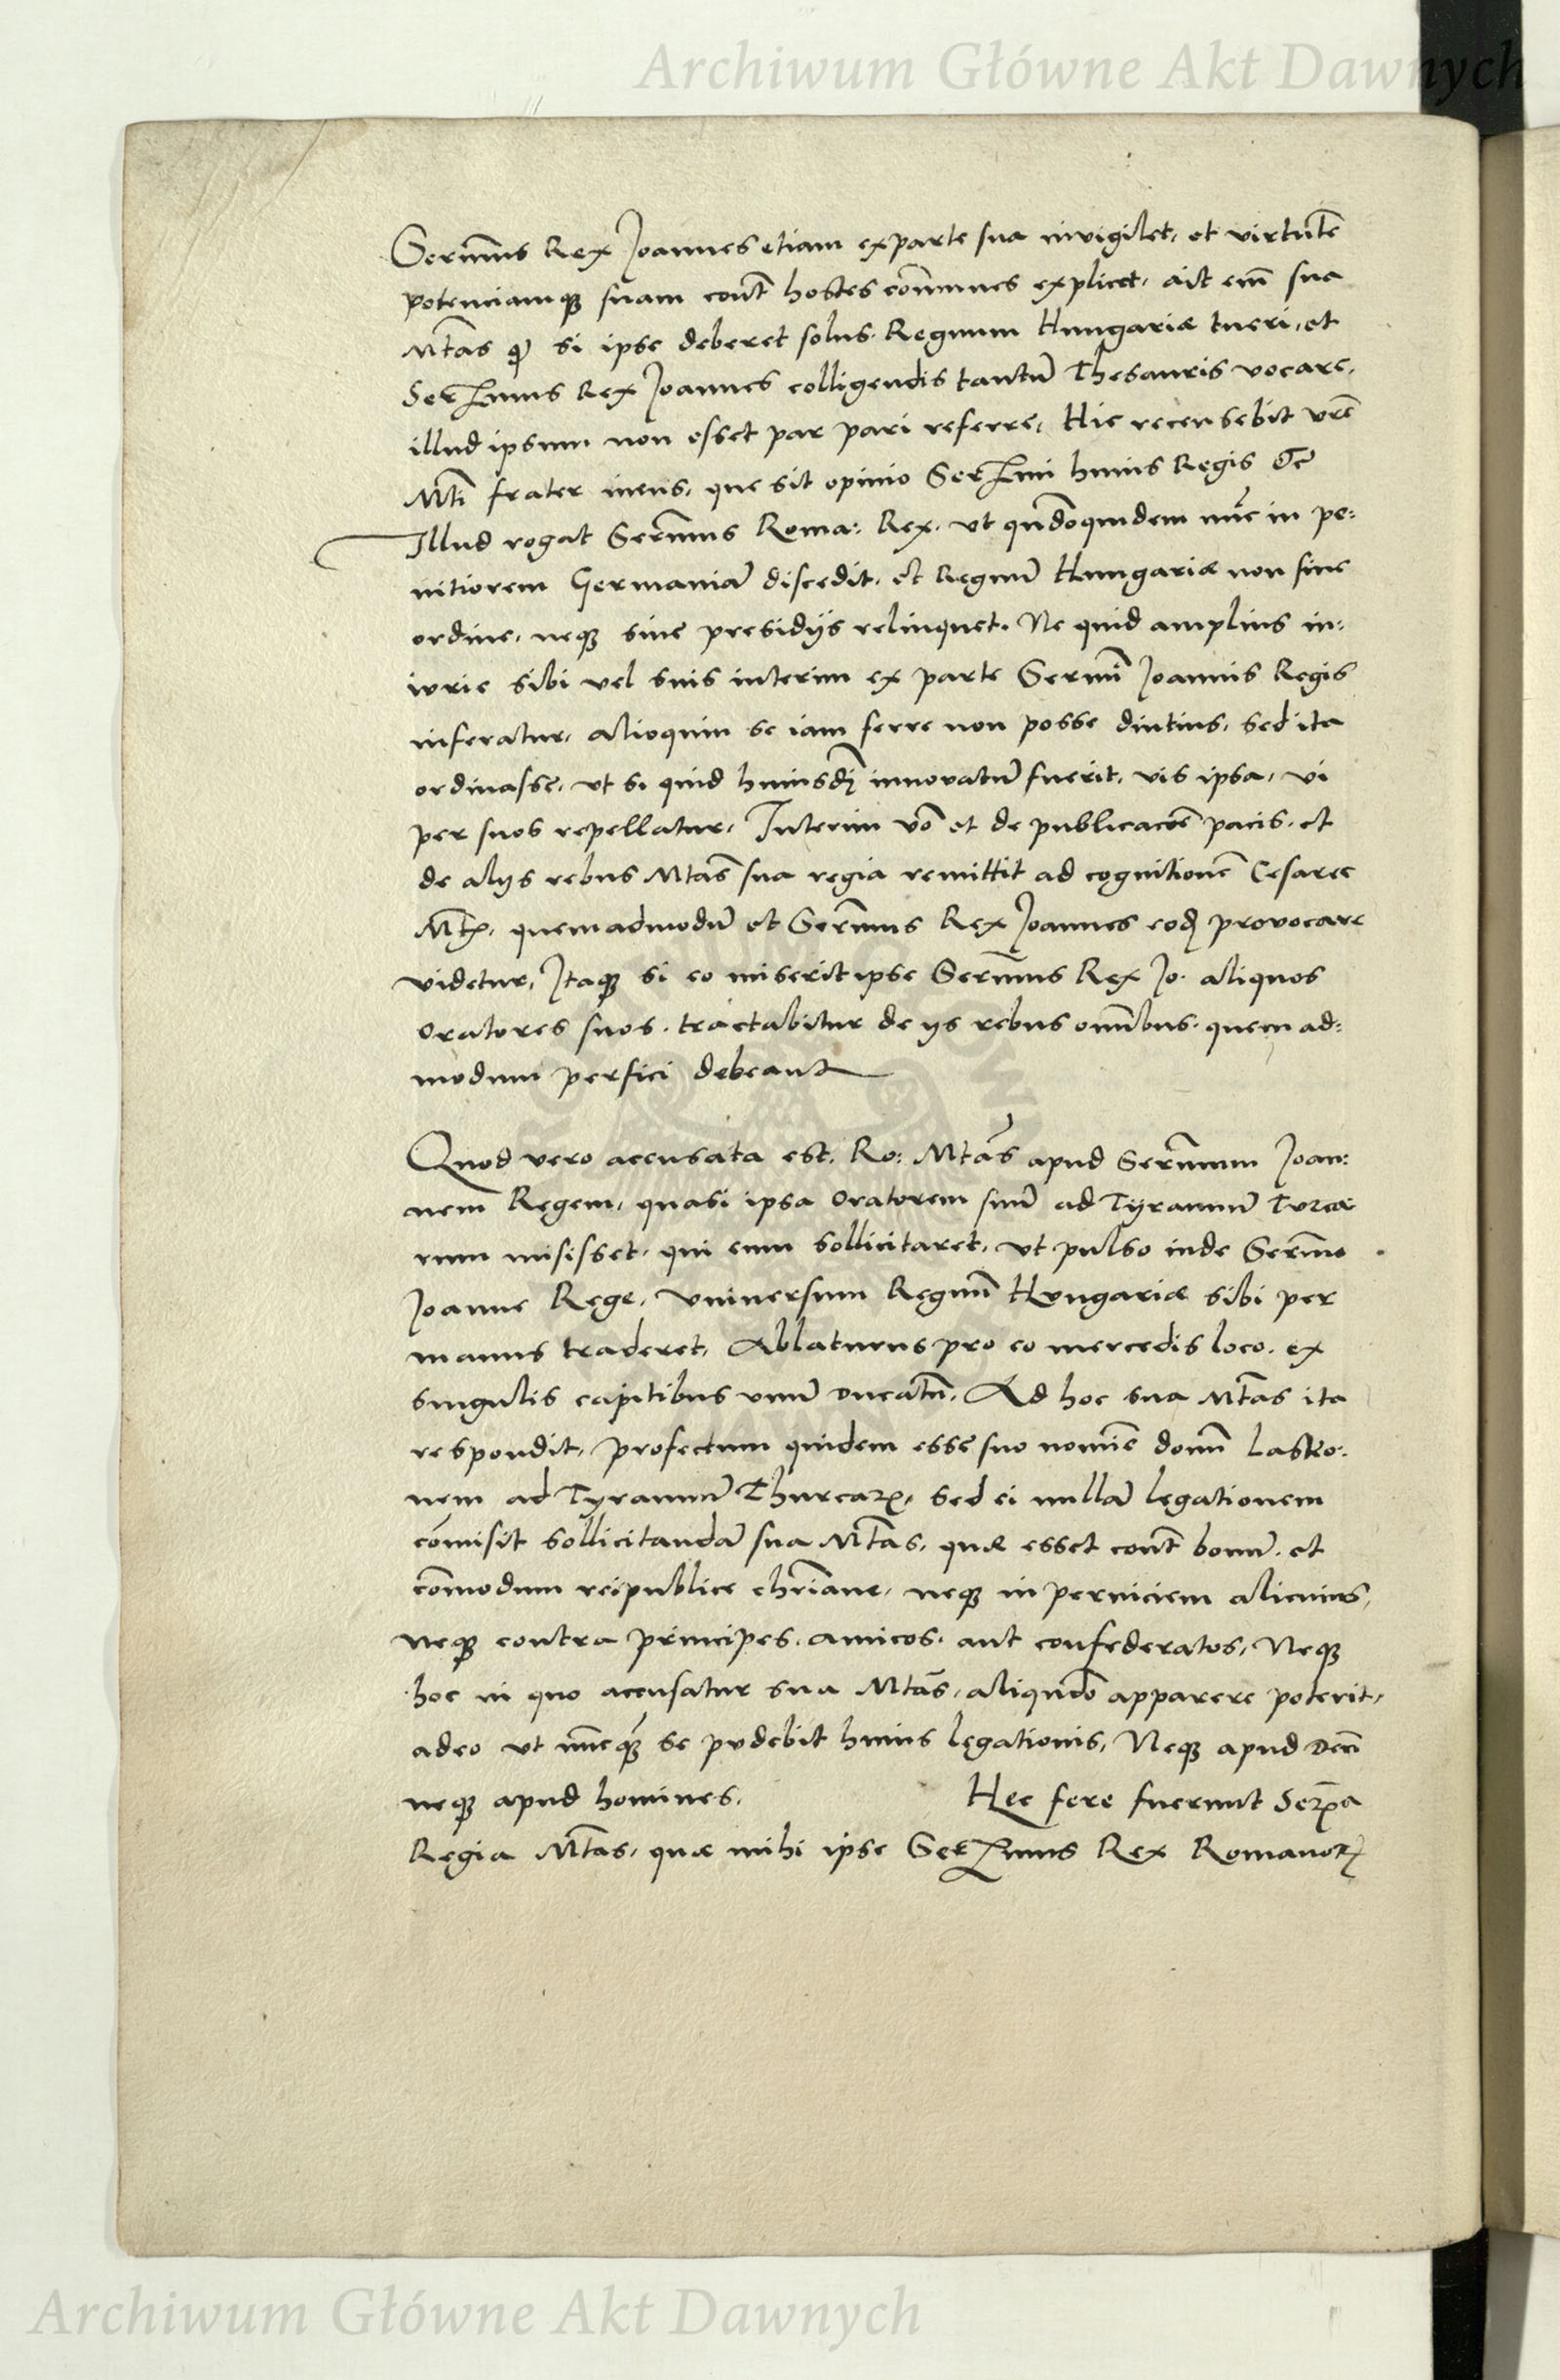 Archiwum Główne Akt Dawnych
Serm̄us Rex Joannes etiam ex parte sua invigilet, et virtutē
potenciamq̨ suam cont̄ hostes com̄unes explicet, ait em̄ sua
Mt̄as q̨ si ipse deberet solus Regnum Hungariæ tueri, et
Serⁿimus Rex Joannes colligendis tantū Thesauris vocare,
illud ipsum non esset par pari referre, Hic recensebit vrē
Mti frater meus, que sit opinio Serⁿimi huius Regis &c̄
Illud rogat Serm̄us Roma: Rex, vt qn̄doquidem nūc in pe:
nitiorem Germaniā discedit, et Regnū Hungariæ non sine
ordine, neq̨ sine presidijs relinquet. Ne quid amplius in:
iurie sibi vel suis interim ex parte Serm̄i Joannis Regis
inferatur, alioquin se iam ferre non posse diutius, sed ita
ordinasse, vt si quid huiusdj̄ innovatū fuerit, vis ipsa, vi
per suos repellatur, Interim vō et de publicacōē pacis, et
de alijs rebus Mtas̄ sua regia remittit ad cognitionē Cesaree
Mt̄is, quemadmodū et Serm̄us Rex Joannes eod̨ provocare
videtur, Itaq̨ si eo miserit ipse Serm̄us Rex Jo. aliquos
Oratores suos, tractabitur de ijs rebus omībus, quem ad:
modum perfici debeant
Quod vero accusata est, Ro: Mtas̄ apud Serm̄um Joan:
nem Regem, quasi ipsa Oratorem suū ad Tyrannū Turca
rum misisset, qui eum sollicitaret, vt pulso inde Serm̄o
Joanne Rege, vniuersum Regnū Hungariæ sibi per
manus traderet, Ablaturus pro eo mercedis loco, ex
singulis capitibus vnū ducatū, Ad hoc sua Mt̄as ita
respondit, profectum quidem esse suo nomīe domn̄ Lasko:
nem ad Tyrannū Thurcarꝝ, sed ei nullā legationem
cōmisit sollicitandā sua Mt̄as, quæ esset cont̄ bonū, et
cōmodum reipublice chrīane, neq̨ in perniciem alicuius,
neq̨ contra principes, amicos, aut confederatos, Neq̨
hoc in quo accusatur sua Mtas̄, aliqn̄do apparere poterit,
adeo vt nūcq̨ se pudebit huius legationis, Neq̨ apud Deū
neq̨ apud homines. Hec fere fuerunt Serⁿia
Regia Mt̄as, quæ mihi ipse Serⁿimus Rex Romanorꝝ
Archiwum Główne Akt Dawnych